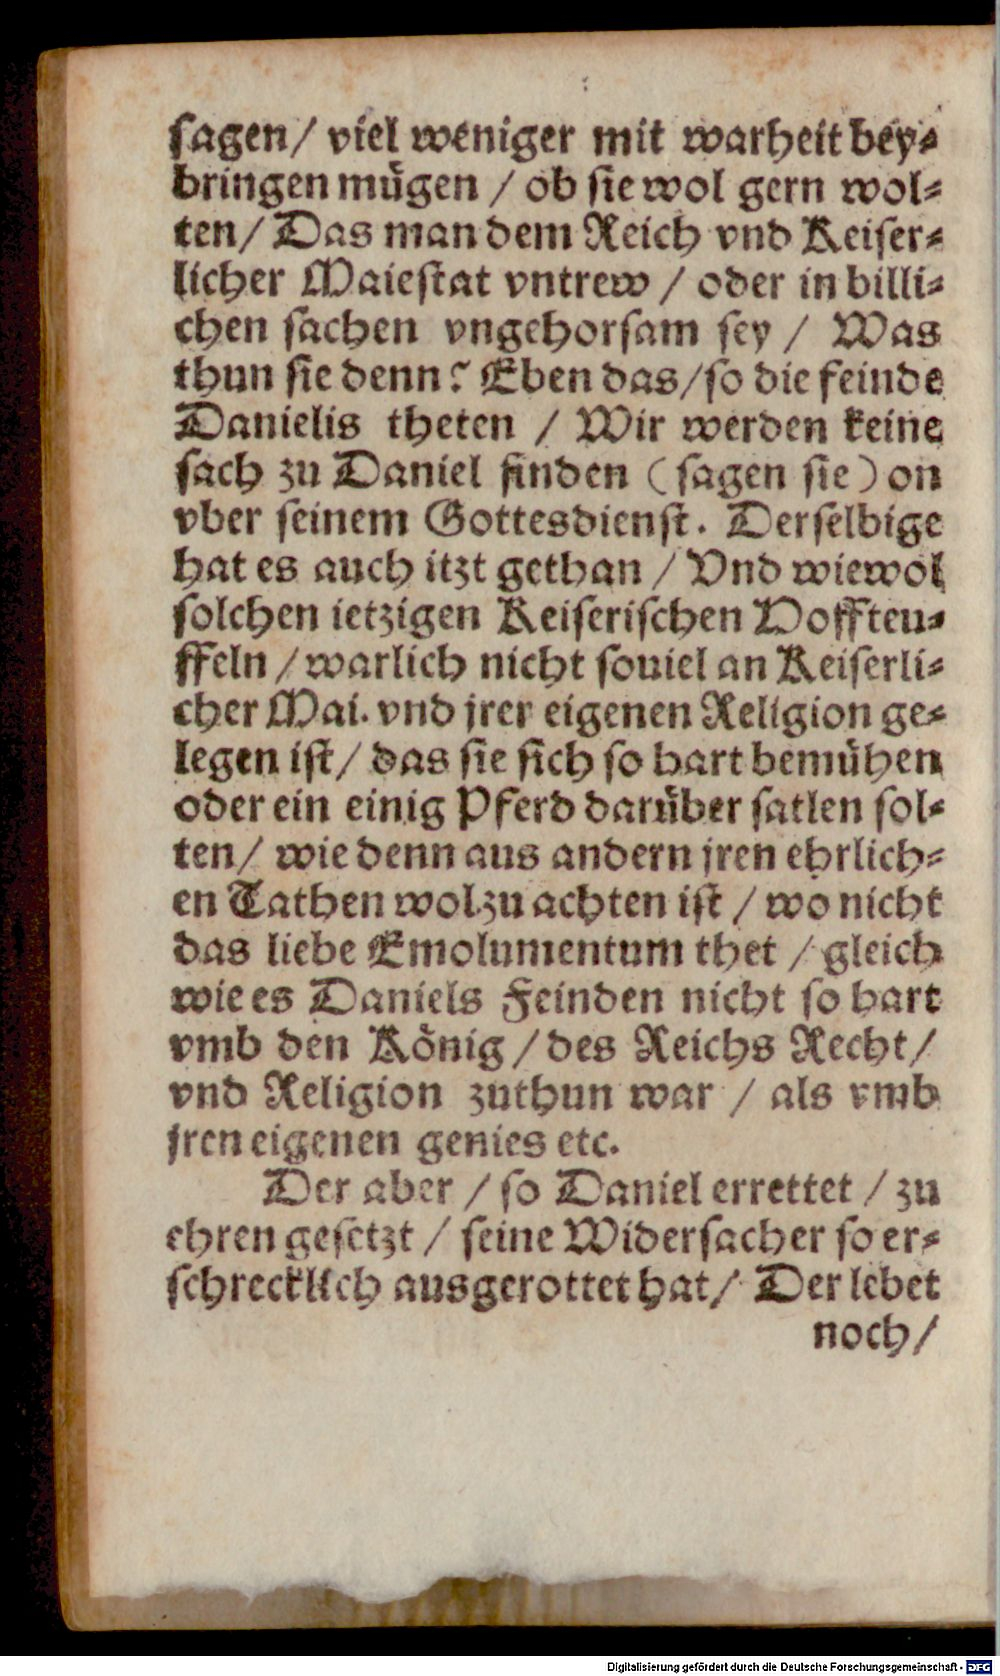 sagen/ viel weniger mit warheit bey⸗
bringen mügen / ob sie wol gern wol⸗
ten/ Das man dem Reich vnd Keiser⸗
licher Maiestat vntrew / oder in billi⸗
chen sachen vngehorsam sey / Was
thun sie denn? Eben das/so die feinde
Danielis theten / Wir werden keine
sach zu Daniel finden (sagen sie) on
vber seinem Gottesdienst. Derselbige
hat es auch itzt gethan / Vnd wiewol
solchen ietzigen Keiserischen Hoffteu⸗
ffeln / warlich nicht souiel an Keiserli⸗
cher Mai. vnd jrer eigenen Religion ge⸗
legen ist/ das sie sich so hart bemühen
oder ein einig Pferd darüber satlen sol⸗
ten/ wie denn aus andern jren ehrlich⸗
en Tathen wol zu achten ist / wo nicht
das liebe Emolumentum thet / gleich
wie es Daniels Feinden nicht so hart
vmb den König / des Reichs Recht/
vnd Religion zuthun war / als vmb
jren eigenen genies etc.
Der aber / so Daniel errettet / zu
ehren gesetzt / seine Widersacher so er⸗
schrecklich ausgerottet hat/ Der lebet
noch/
Digitalisierung gefördert durch die Deutsche Forschungsgemeinschaft - DFG